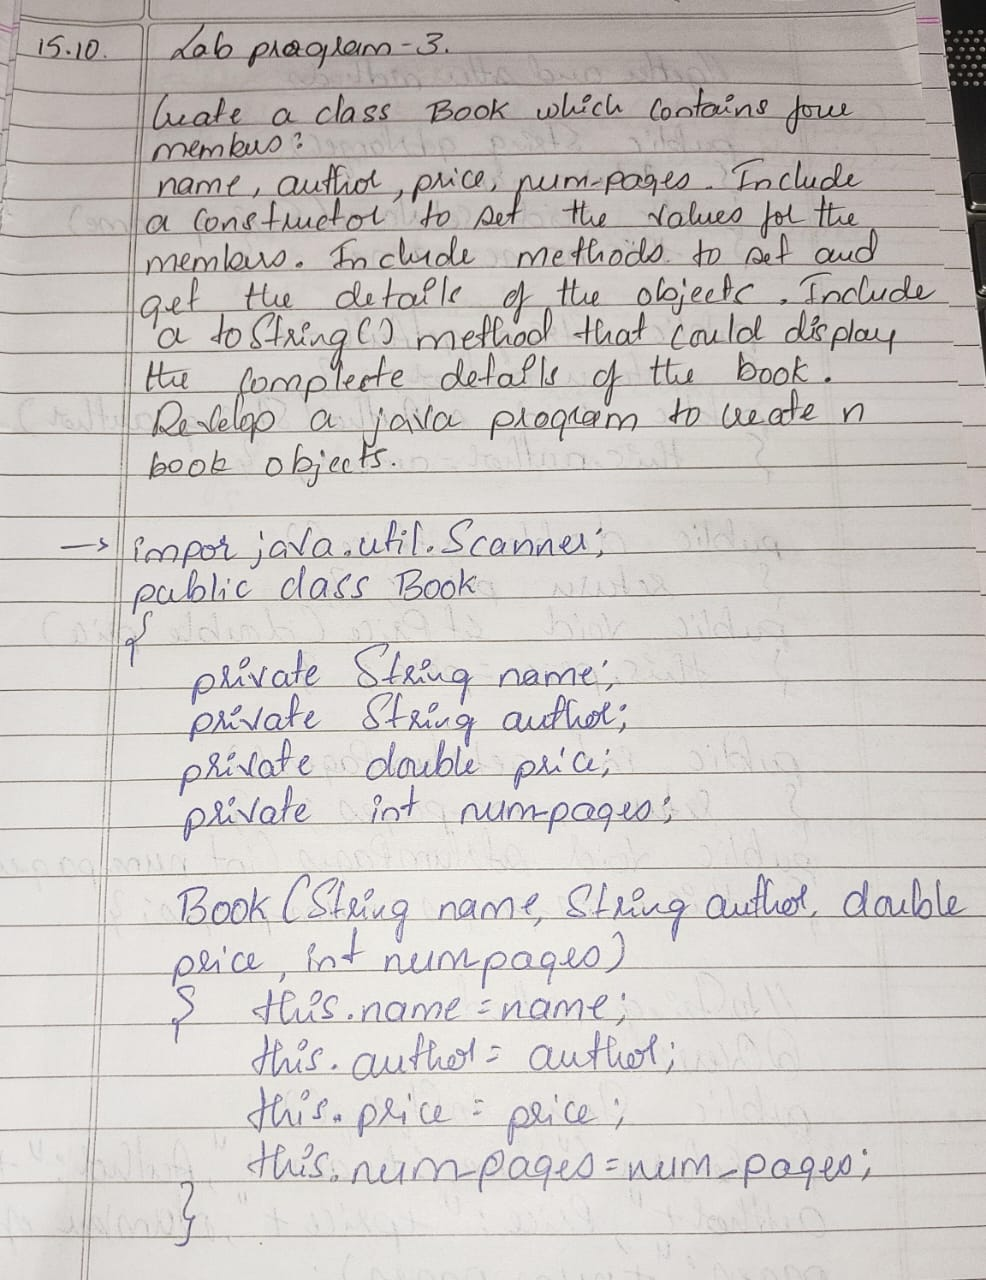 15.10. Lab program-3.
Create a class Book which contains four
members:
name, author, price, num-pages. Include
a constructor to set the values for the
members. Include methods to set and
get the details of the objects. Include
a toString() method that could display
the complete details of the book.
Develop a java program to create n
book objects.
→ impor java.util.Scanner;
public class Book
{
private String name;
private String author;
private double price;
private int num-pages;
Book (String name, String author, double
price, int num pages)
{ this.name = name;
this.author = author;
this.price = price;
this.num-pages = num_pages;
}